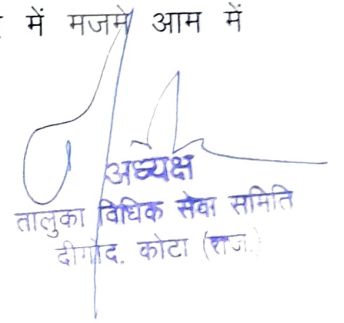 में मजमे आम में
अध्यक्ष
तालुका विधिक सेवा समिति
दीगोद, कोटा (राज.)